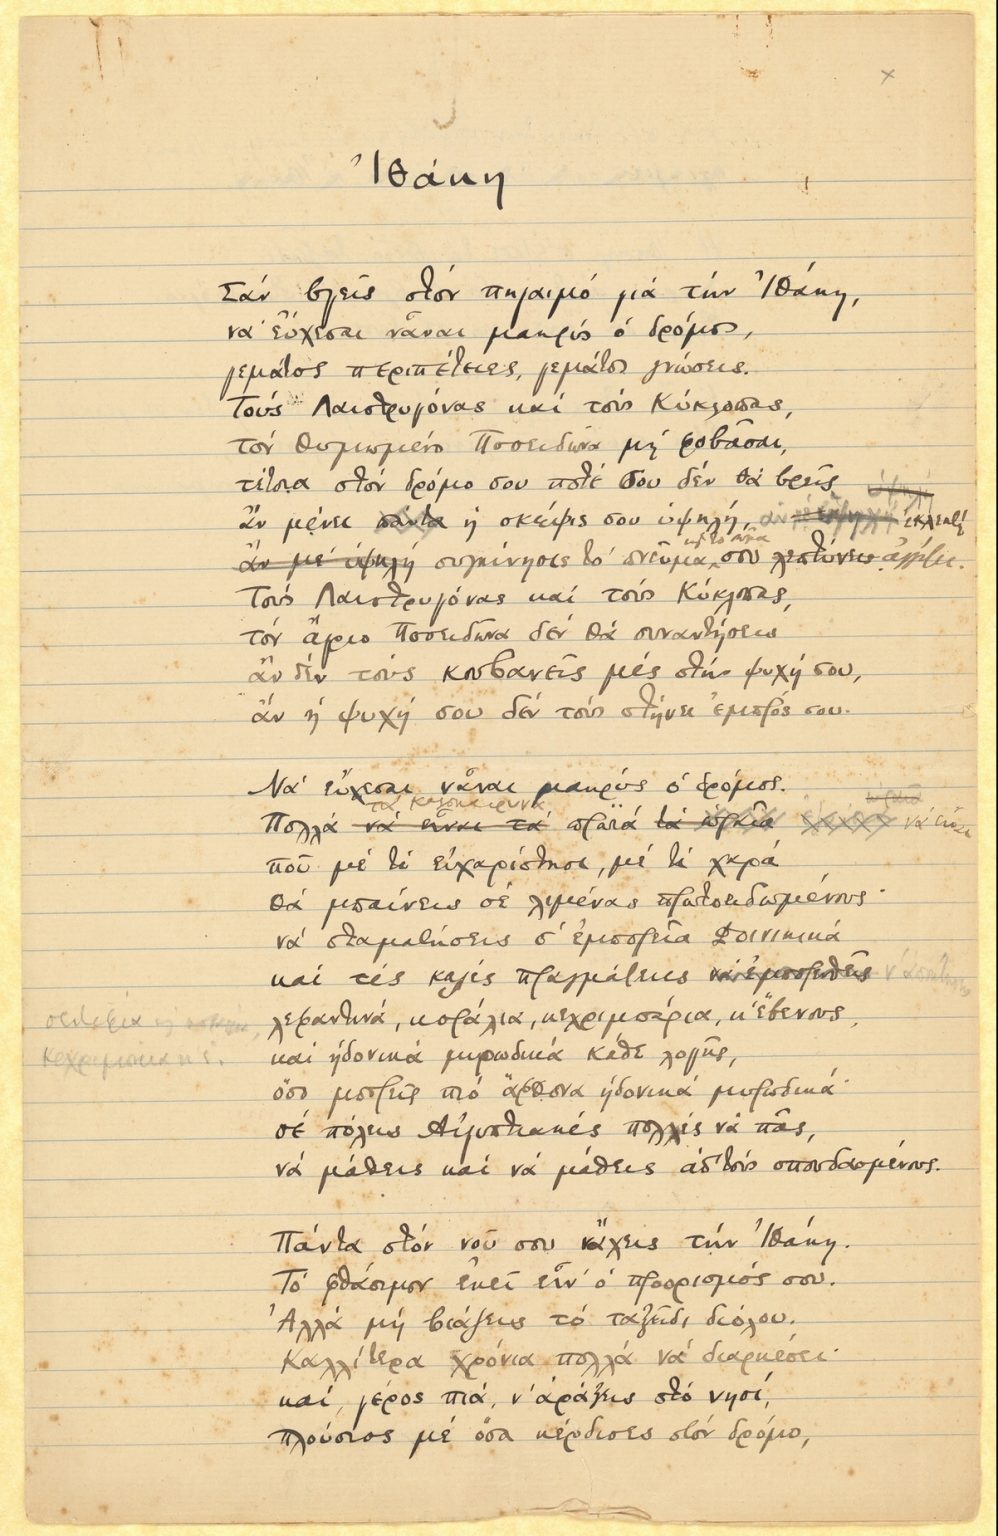 Ἰθάκη
Σάν βγεῖς στόν πηγαιμό γιά τήν Ἰθάκη,
νά εὔχεσαι νἆναι μακρύς ὁ δρόμος,
γεμάτος περιπέτειες, γεμάτος γνώσεις.
Τούς Λαιστρυγόνας καί τούς Κύκλωπας,
τόν θυμωμένο Ποσειδῶνα μή φοβᾶσαι,
τέτοια στόν δρόμο σου ποτέ σου δέν θά βρεῖς
ὑψηλή
ἄν μένει πάντα ἡ σκέψις σου ὑψηλή, ἄν ἐκλεκτή
ἄν μέ ὑψηλή συγκίνησις τό πνεῦμα σου ἀγγίζει.
Τούς Λαιστρυγόνας καί τούς Κύκλωπας,
τόν ἄγριο Ποσειδῶνα δέν θά συναντήσεις
ἄν δέν τούς κουβανεῖς μές στήν ψυχή σου,
ἄν ἡ ψυχή σου δέν τούς στήνει ἐμπρός σου.
Νά εὔχεσαι νἆναι μακρύς ὁ δρόμος.
τά καλοκαιρινά
Πολλά νά εἶναι τά πρωϊά νά εἶναι
πού μέ τί εὐχαρίστησι, μέ τί χαρά
θά μπαίνεις σέ λιμένας πρωτοειδωμένους·
νά σταματήσεις σ' ἐμπορεῖα Φοινικικά
καί τές καλές πραγμάτειες ν' ἀποκτήσεις
λεφαντινά, κοράλια, κεχριμπάρια, κ' ἔβενους,
καί ἡδονικά μυρωδικά κάθε λογῆς,
ὅσο μπορεῖς πιό ἄφθονα ἡδονικά μυρωδικά·
σέ πόλεις Αἰγυπτιακές πολλές νά πᾶς,
νά μάθεις καί νά μάθεις ἀπ' τούς σπουδασμένους.
Πάντα στόν νοῦ σου νἄχεις τήν Ἰθάκη.
Τό φθάσιμον ἐκεῖ εἶν' ὁ προορισμός σου.
Ἀλλά μή βιάζεις τό ταξεῖδι διόλου.
Καλλίτερα χρόνια πολλά νά διαρκέσει·
καί, γέρος πιά, ν' ἀράξεις στό νησί,
πλούσιος μέ ὅσα κέρδισες στόν δρόμο,